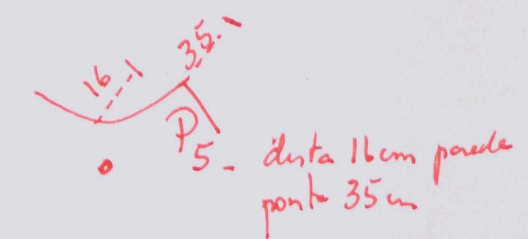 35
16
P
5 - dista 16 cm parede
ponta 35 cm